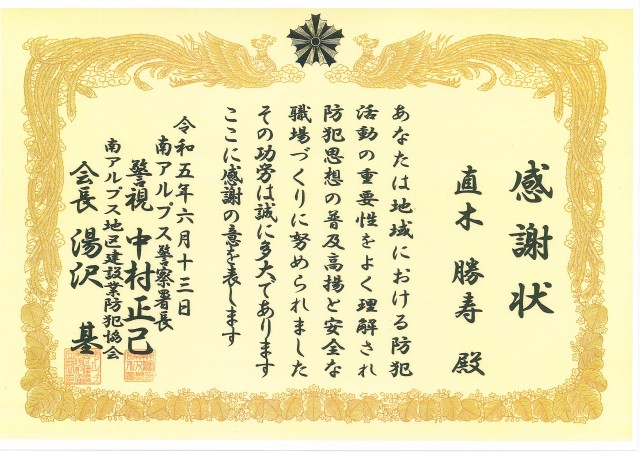 感謝状
直木勝寿殿
あなたは地域における防犯
活動の重要性をよく理解され
防犯思想の普及高揚と安全な
職場づくりに努められました
その功労は誠に多大であります
ここに感謝の意を表します
令和五年六月十三日
南アルプス警察署長
警視 中村正己
南アルプス地区建設業防犯協会
会長 湯沢 基